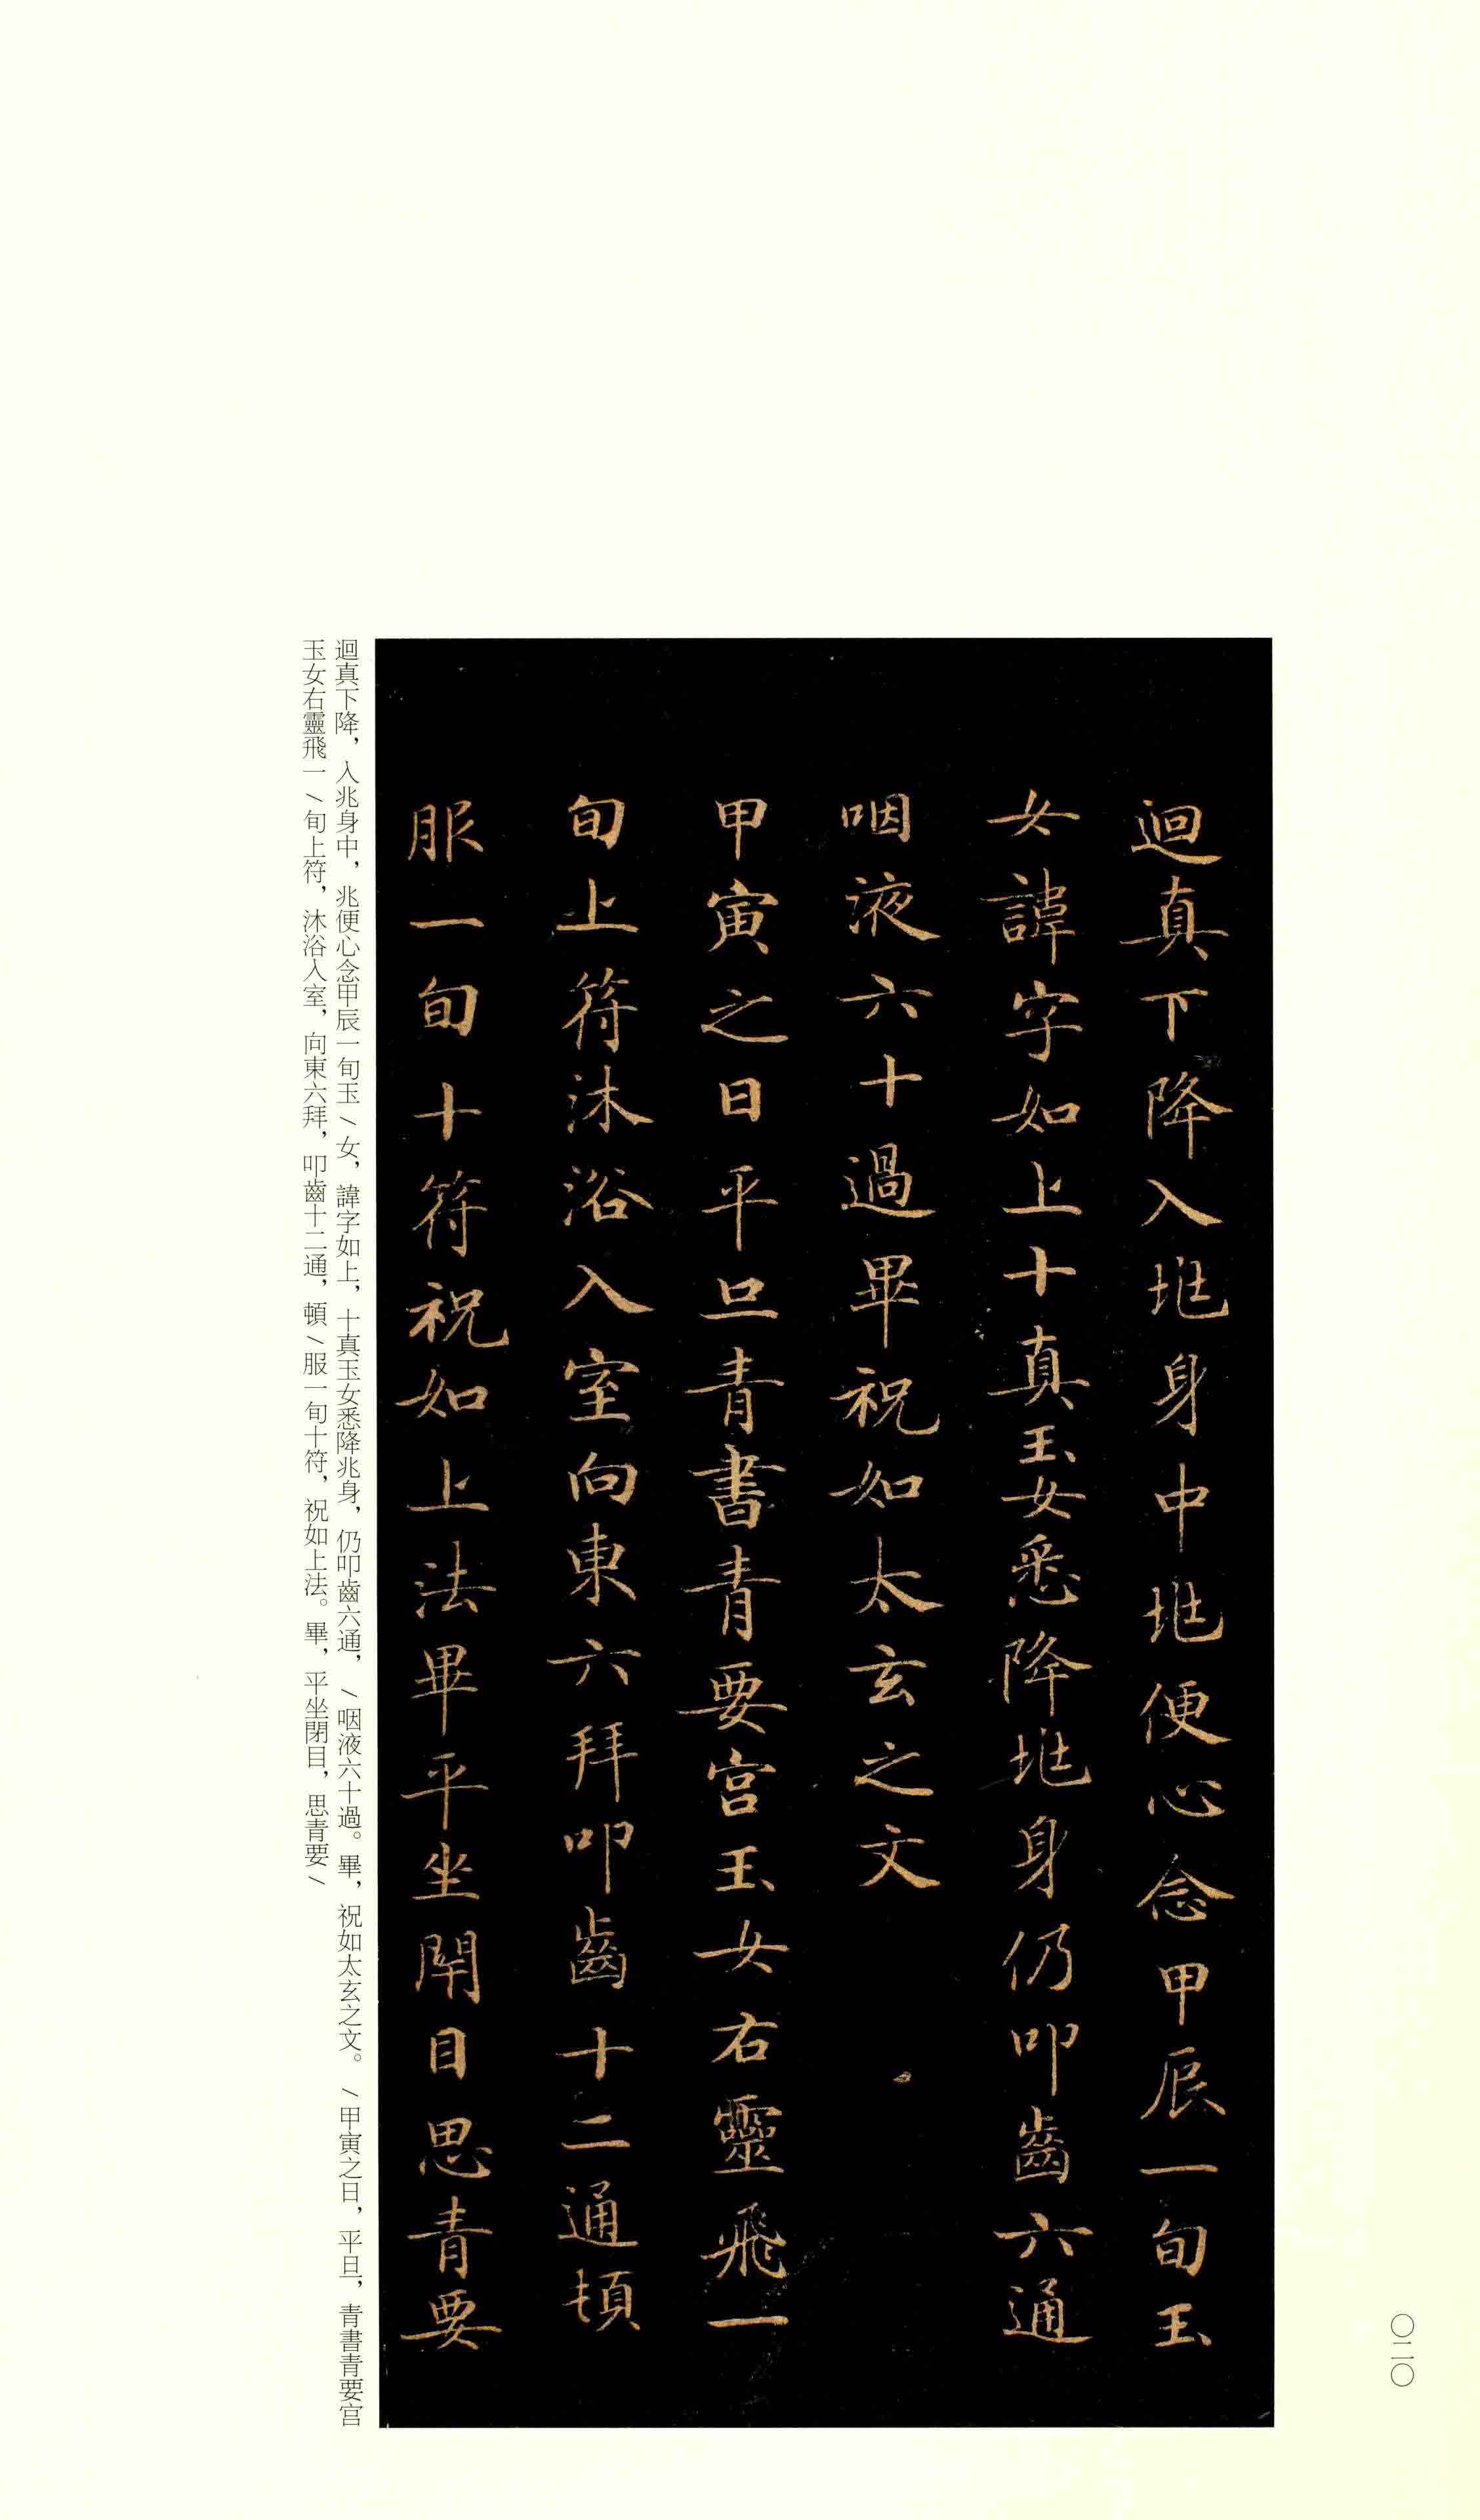 迴真下降入兆身中兆便心念甲辰一旬玉
女諱字如上十真玉女悉降兆身仍叩齒六通
咽液六十過畢祝如太玄之文
甲寅之日平旦青書青要宮玉女右靈飛一
旬上符沐浴入室向東六拜叩齒十二通頓
服一旬十符祝如上法畢平坐閉目思青要
迴真下降，入兆身中，兆便心念甲辰一旬玉／女，諱字如上，十真玉女悉降兆身，仍叩齒六通，／咽液六十過。畢，祝如太玄之文。／甲寅之日，平旦，青書青要宮
玉女右靈飛一／旬上符，沐浴入室，向東六拜，叩齒十二通，頓／服一旬十符，祝如上法。畢，平坐閉目，思青要／
〇二〇